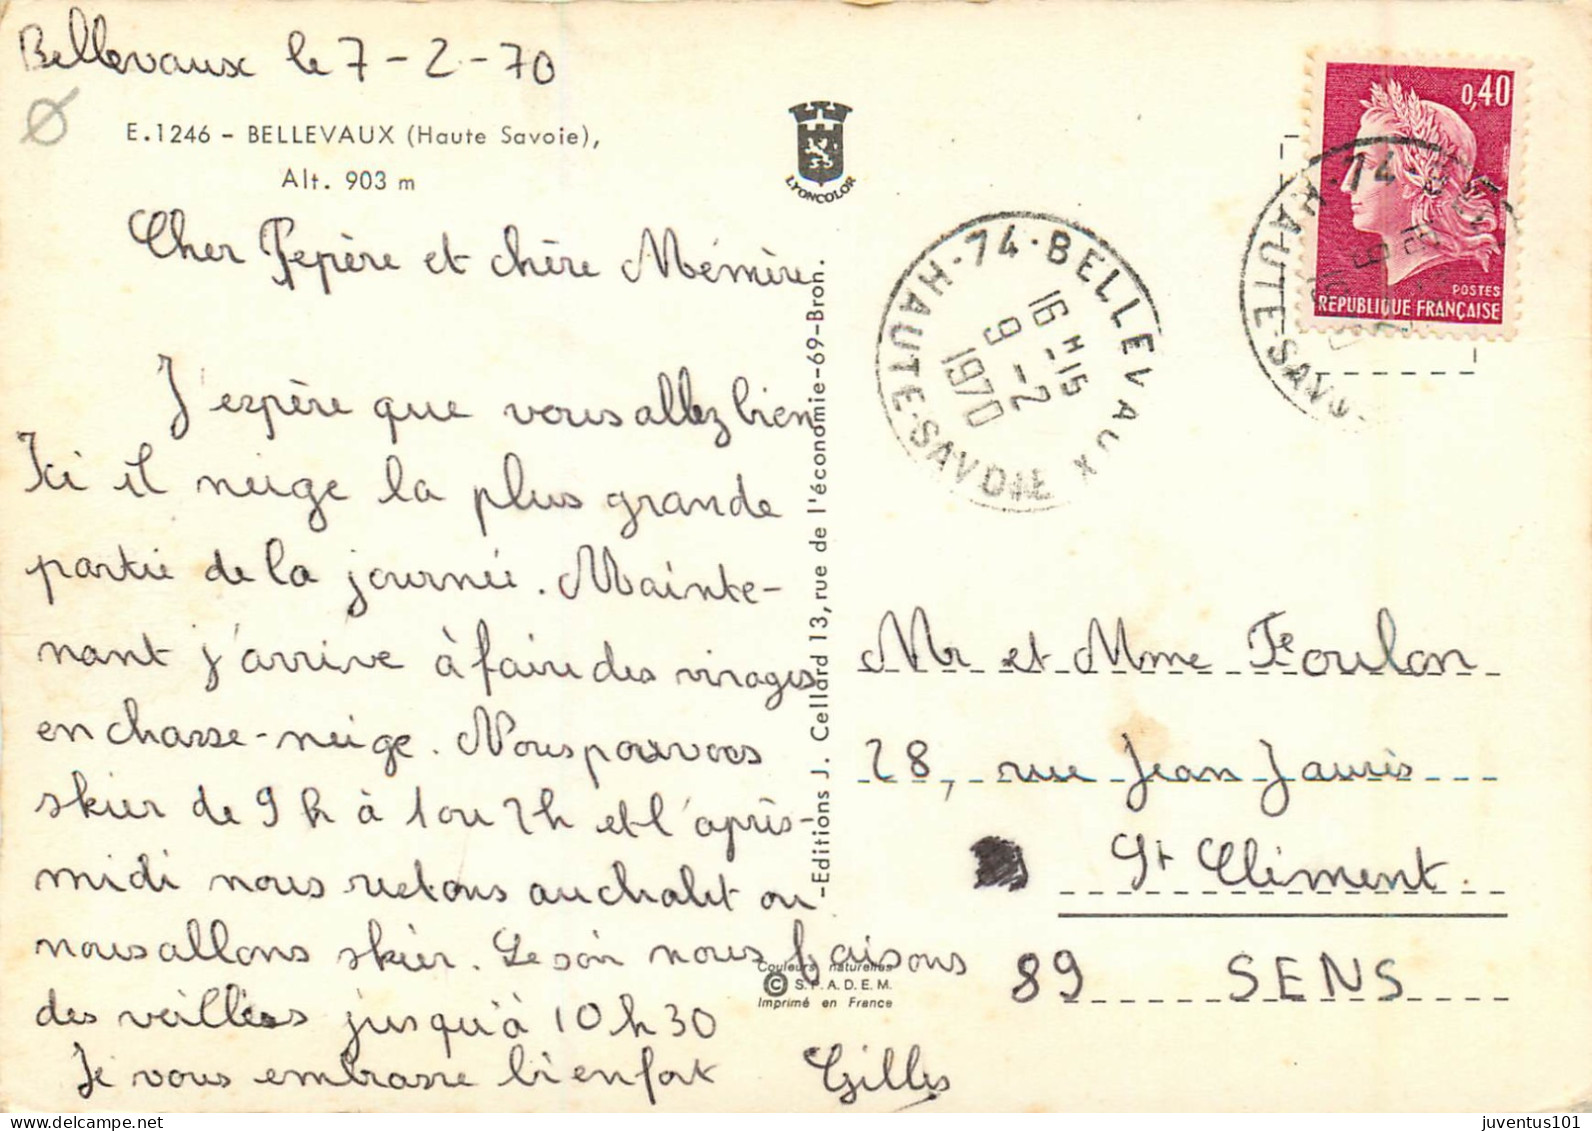 Bellevaux le 7-2-70
E.1246 - BELLEVAUX (Haute Savoie),
Alt. 903 m
Cher Pepère et chère Mémère
J'espère que vous allez bien
Ici il neige la plus grande
partie de la journée. Mainte-
nant j'arrive à faire des virages
en chasse-neige. Nous pouvons
skier de 9h à 1 ou 2h et l'après-
midi nous restons au chalet ou
nous allons skier. Le soir nous faisons
des veillées jusqu'à 10h30
Je vous embrasse bien fort Gilles
LYONCOLOR
-Editions J. Cellard 13, rue de l'économie-69-Bron.
Couleurs naturelles
© S.P.A.D.E.M.
Imprimé en France
74-BELLEVAUX
HAUTE-SAVOIE
16H15
9-2
1970
0,40
POSTES
REPUBLIQUE FRANÇAISE
74
HAUTE-SAVO
Mr et Mme Foulon
28, rue Jean Jaurès
St Clément
89 SENS
juventus101